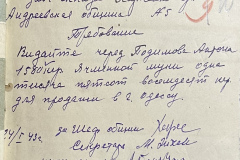 Андреевская община А5
Требование
Видайте через Подимова Аарона
1580 кгр. Ячменной муки одна
тисяча пятсот восемдесят кгр.
для продажи в г. Одессу
24/I 43г. за Шеф общини
Секретарь М.